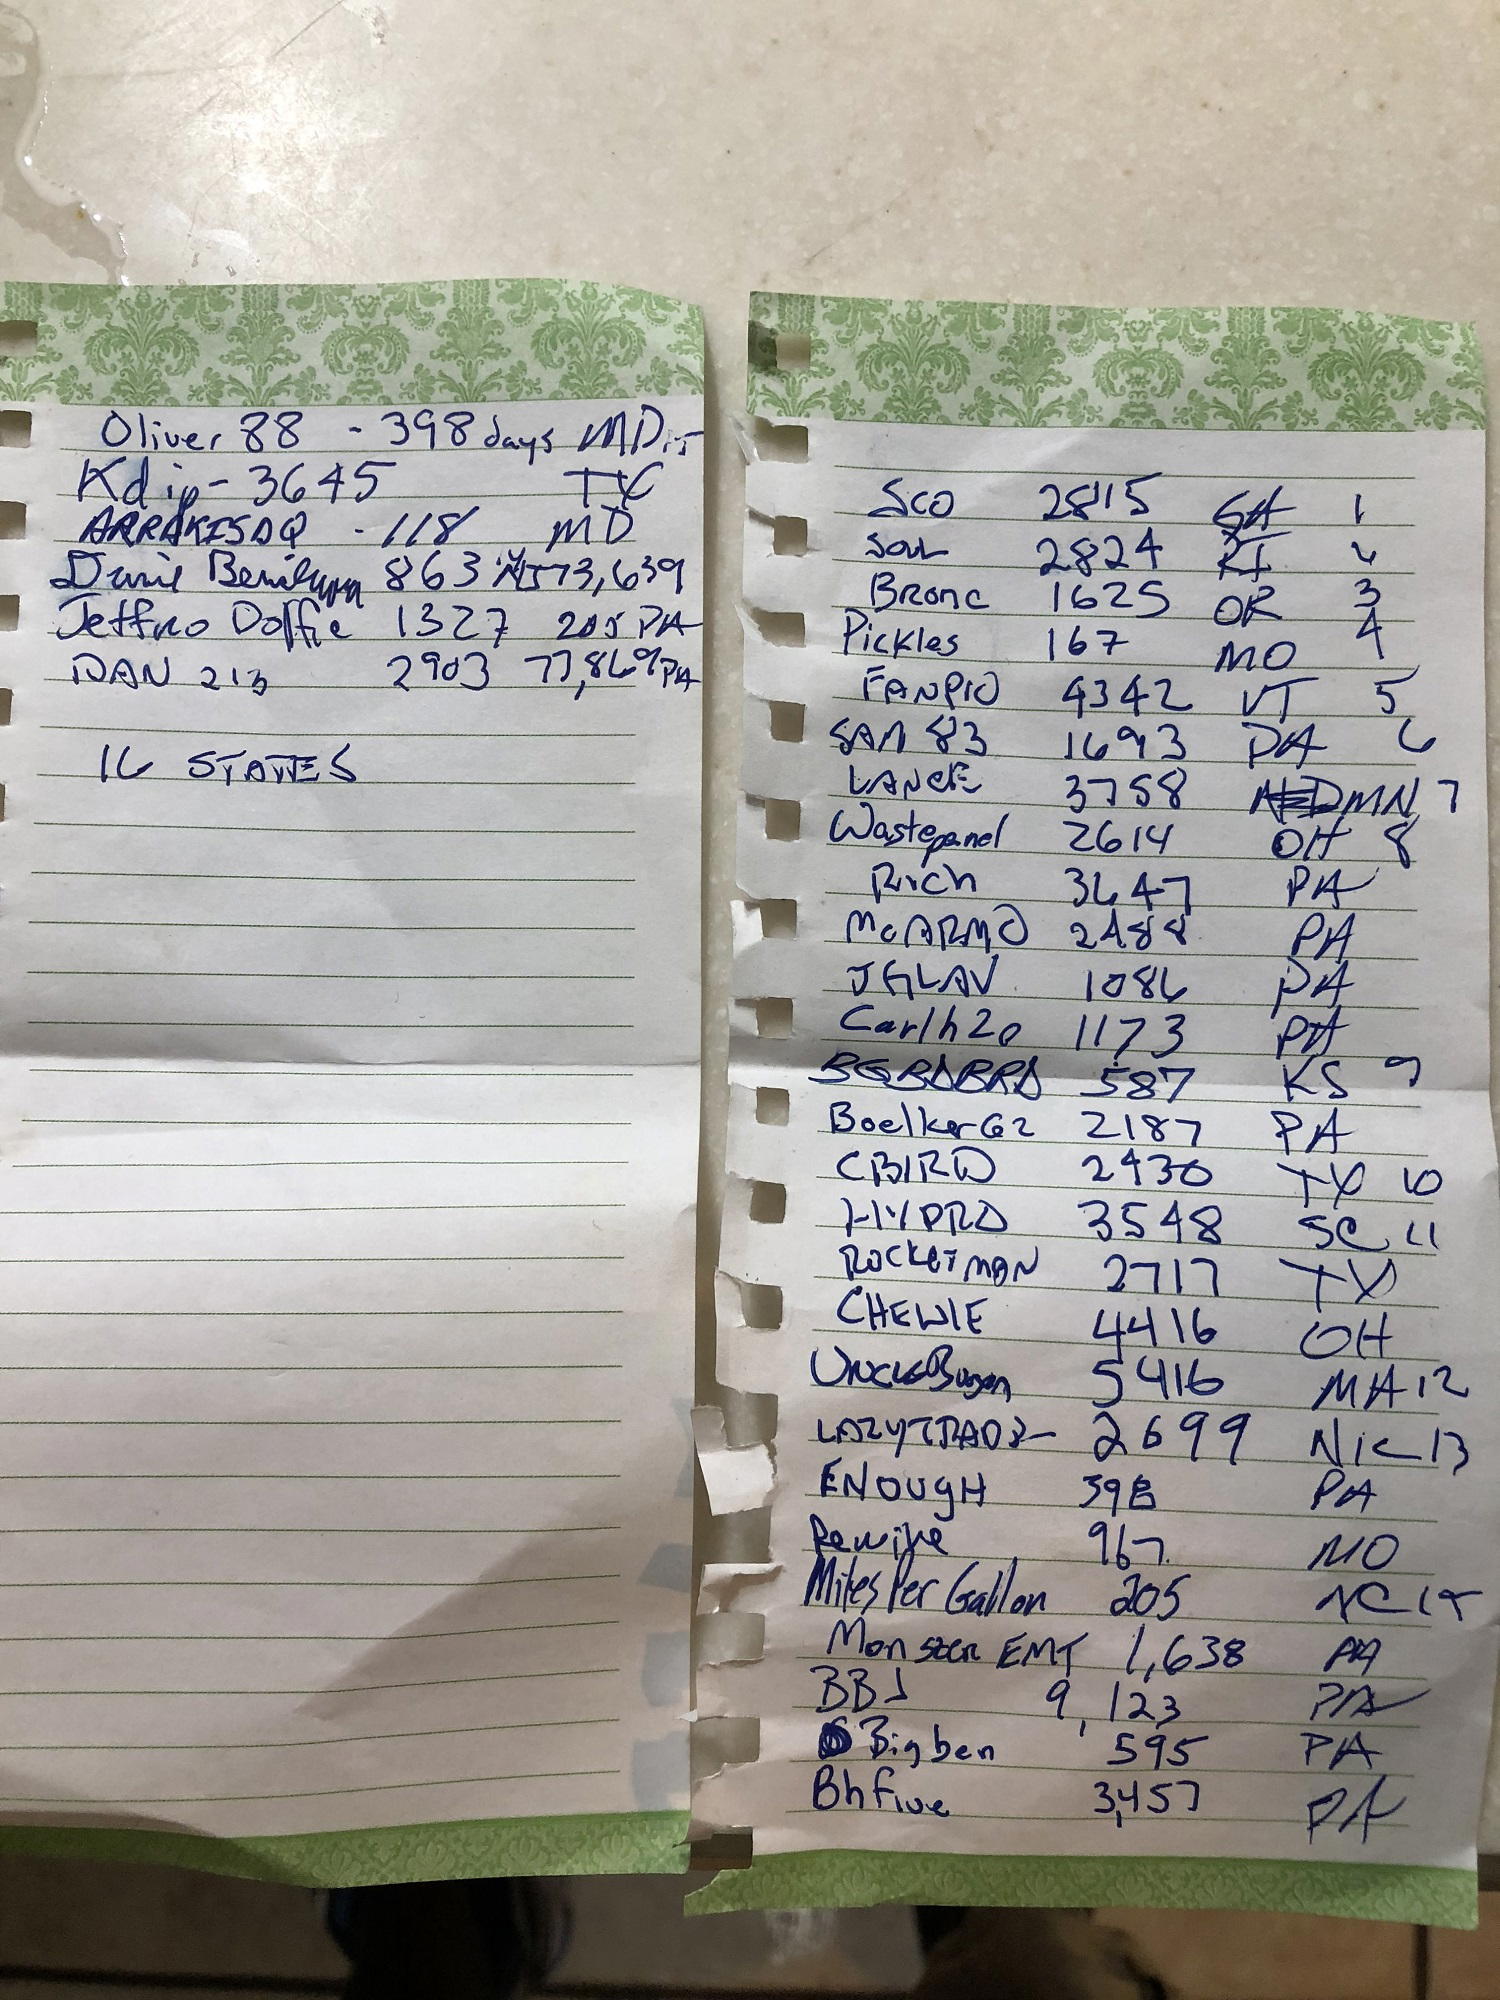 Oliver 88 - 398 days MD 15
Kdip - 3645 TX
ARRAKISDQ - 118 MD
863 NJ 73,639
Jethro Doffie 1327 205 PA
DAN 213 2903 77,869 PA
16 STATES
SCO 2815 GA 1
SOUL 2824 RI 2
Bronc 1625 OR 3
Pickles 167 MO 4
FANPIO 4342 VT 5
SAM 83 1693 PA 6
LANCE 3758 MN 7
Wastepanel 2614 OH 8
Rich 3647 PA
McARMO 2488 PA
JGLAV 1086 PA
Carlh2o 1173 PA
BGBDBRD 587 KS 9
Boelker62 2187 PA
CBIRD 2430 TX 10
HYPRD 3548 SC 11
ROCKETMAN 2717 TX
CHEWIE 4416 OH
5416 MA 12
2699 13
ENOUGH 398 PA
Rewire 967 MO
Miles Per Gallon 205 NC 15
Monster EMT 1,638 PA
BBJ 9,123 PA
Bigben 595 PA
Bhfive 3,457 PA